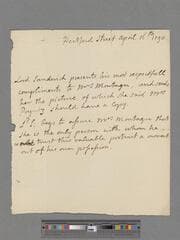 Hertford Street April 16th 1790
Lord Sandwich presents his most respectfull
compliments to Mrs Montagu, and sends
her the picture of which she said Mrs
should have a Copy.
Ld S. begs to assure Mrs Montagu that
she is the only person with whom he
trust this valuable portrait a moment
out of his own possession.